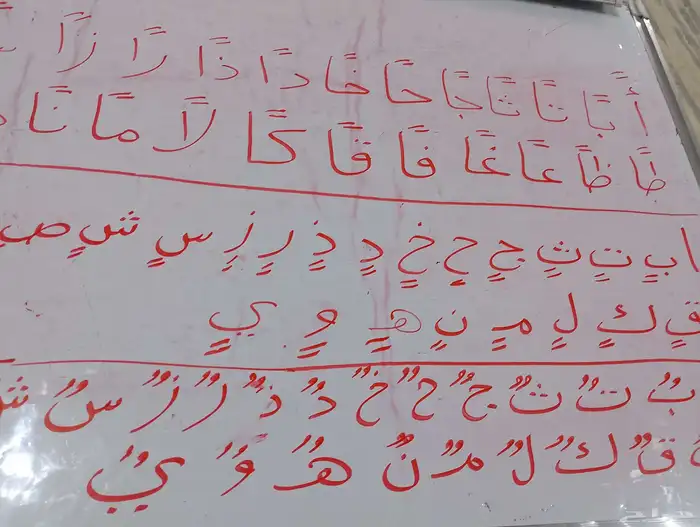 أً بًا تًا ثًا جًا حًا خًا دًا ذًا رًا زًا
طًا ظًا عًا غًا فًا قًا كًا لًا مًا نًا
ا بٍ تٍ ثٍ جٍ حٍ خٍ دٍ ذٍ رٍ زٍ سٍ شٍ صٍ
قٍ كٍ لٍ مٍ نٍ هٍ وٍ يٍ
بٌ تٌ ثٌ جٌ حٌ خٌ دٌ ذٌ رٌ زٌ سٌ شٌ
قٌ كٌ لٌ مٌ نٌ هٌ وٌ يٌ